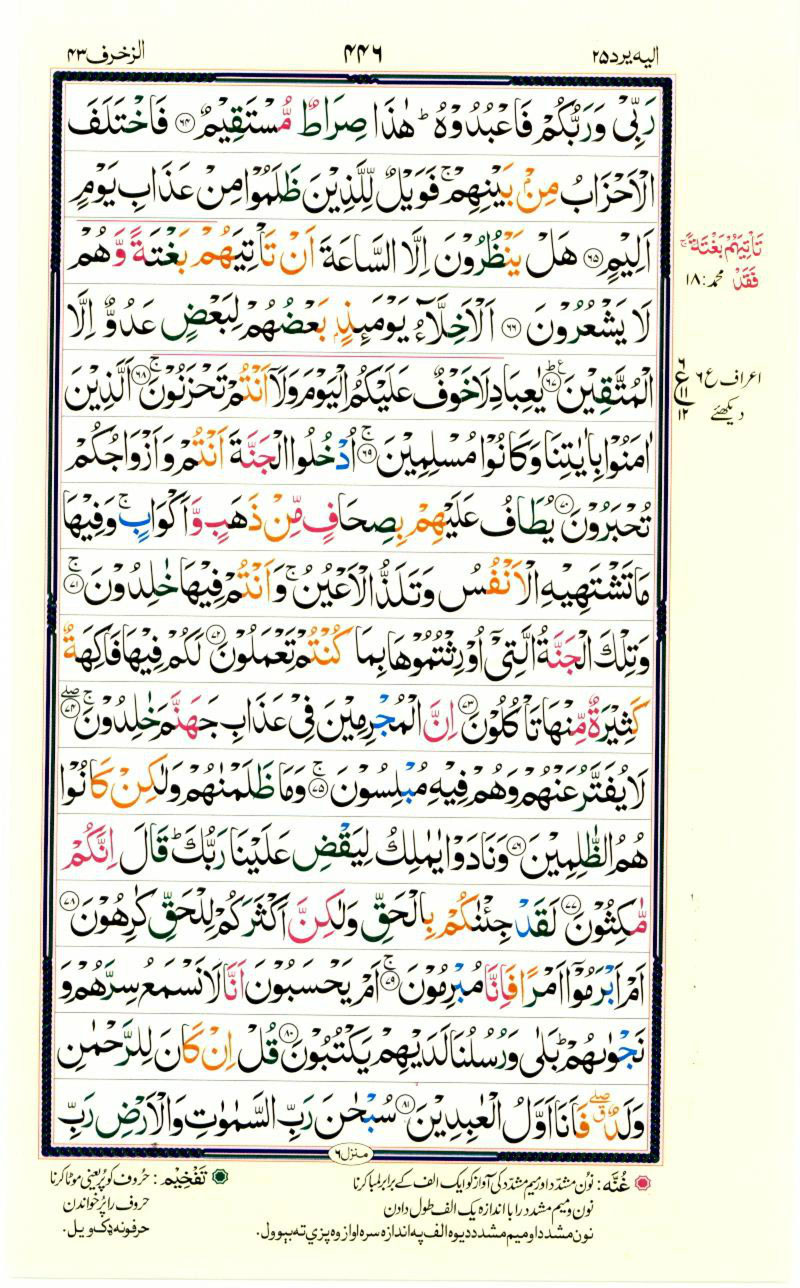 الیه یرد ۲۵
۴۴۶
الزخرف ۴۳
رَبِّیْ وَرَبُّکُمْ فَاعْبُدُوْهُ ؕ هٰذَا صِرَاطٌ مُّسْتَقِیْمٌ ﴿۶۴﴾ فَاخْتَلَفَ
الْاَحْزَابُ مِنْۢ بَیْنِهِمْ ۚ فَوَیْلٌ لِّلَّذِیْنَ ظَلَمُوْا مِنْ عَذَابِ یَوْمٍ
اَلِیْمٍ ﴿۶۵﴾ هَلْ یَنْظُرُوْنَ اِلَّا السَّاعَةَ اَنْ تَاْتِیَهُمْ بَغْتَةً وَّهُمْ
لَا یَشْعُرُوْنَ ﴿۶۶﴾ اَلْاَخِلَّآءُ یَوْمَئِذٍۭ بَعْضُهُمْ لِبَعْضٍ عَدُوٌّ اِلَّا
الْمُتَّقِیْنَ ﴿۶۷﴾ یٰعِبَادِ لَا خَوْفٌ عَلَیْکُمُ الْیَوْمَ وَلَاۤ اَنْتُمْ تَحْزَنُوْنَ ۚ﴿۶۸﴾ اَلَّذِیْنَ
اٰمَنُوْا بِاٰیٰتِنَا وَکَانُوْا مُسْلِمِیْنَ ۚ﴿۶۹﴾ اُدْخُلُوا الْجَنَّةَ اَنْتُمْ وَاَزْوَاجُکُمْ
تُحْبَرُوْنَ ﴿۷۰﴾ یُطَافُ عَلَیْهِمْ بِصِحَافٍ مِّنْ ذَهَبٍ وَّاَکْوَابٍ ۚ وَفِیْهَا
مَا تَشْتَهِیْهِ الْاَنْفُسُ وَتَلَذُّ الْاَعْیُنُ ۚ وَاَنْتُمْ فِیْهَا خٰلِدُوْنَ ۚ﴿۷۱﴾
وَتِلْکَ الْجَنَّةُ الَّتِیْۤ اُوْرِثْتُمُوْهَا بِمَا کُنْتُمْ تَعْمَلُوْنَ ﴿۷۲﴾ لَکُمْ فِیْهَا فَاکِهَةٌ
کَثِیْرَةٌ مِّنْهَا تَاْکُلُوْنَ ﴿۷۳﴾ اِنَّ الْمُجْرِمِیْنَ فِیْ عَذَابِ جَهَنَّمَ خٰلِدُوْنَ ۚۖ﴿۷۴﴾
لَا یُفَتَّرُ عَنْهُمْ وَهُمْ فِیْهِ مُبْلِسُوْنَ ۚ﴿۷۵﴾ وَمَا ظَلَمْنٰهُمْ وَلٰکِنْ کَانُوْا
هُمُ الظّٰلِمِیْنَ ﴿۷۶﴾ وَنَادَوْا یٰمٰلِکُ لِیَقْضِ عَلَیْنَا رَبُّکَ ؕ قَالَ اِنَّکُمْ
مّٰکِثُوْنَ ﴿۷۷﴾ لَقَدْ جِئْنٰکُمْ بِالْحَقِّ وَلٰکِنَّ اَکْثَرَکُمْ لِلْحَقِّ کٰرِهُوْنَ ﴿۷۸﴾
اَمْ اَبْرَمُوْۤا اَمْرًا فَاِنَّا مُبْرِمُوْنَ ۚ﴿۷۹﴾ اَمْ یَحْسَبُوْنَ اَنَّا لَا نَسْمَعُ سِرَّهُمْ وَ
نَجْوٰىهُمْ ؕ بَلٰی وَرُسُلُنَا لَدَیْهِمْ یَکْتُبُوْنَ ﴿۸۰﴾ قُلْ اِنْ کَانَ لِلرَّحْمٰنِ
وَلَدٌ ۖق فَاَنَا اَوَّلُ الْعٰبِدِیْنَ ﴿۸۱﴾ سُبْحٰنَ رَبِّ السَّمٰوٰتِ وَالْاَرْضِ رَبِّ
تَاْتِیَهُمْ بَغْتَةً ۚ
فَقَدْ محمد: ۱۸
۶
ع
۱۱
۱۲
اعراف ع ۶
دیکھئے
منزل ۶
غُنَّه: نون مشدّد اور میم مشدّد کی آواز کو ایک الف کے برابر لمبا کرنا
نون و میم مشدد را با اندازه یک الف طول دادن
نون مشدد او میم مشدد دیوه الف په اندازه سره اواز وه پزې ته بېوول.
تَفْخِیْم: حروف کو پُر یعنی موٹا کرنا
حروف را پُر خواندن
حرفونه ډک ویل.